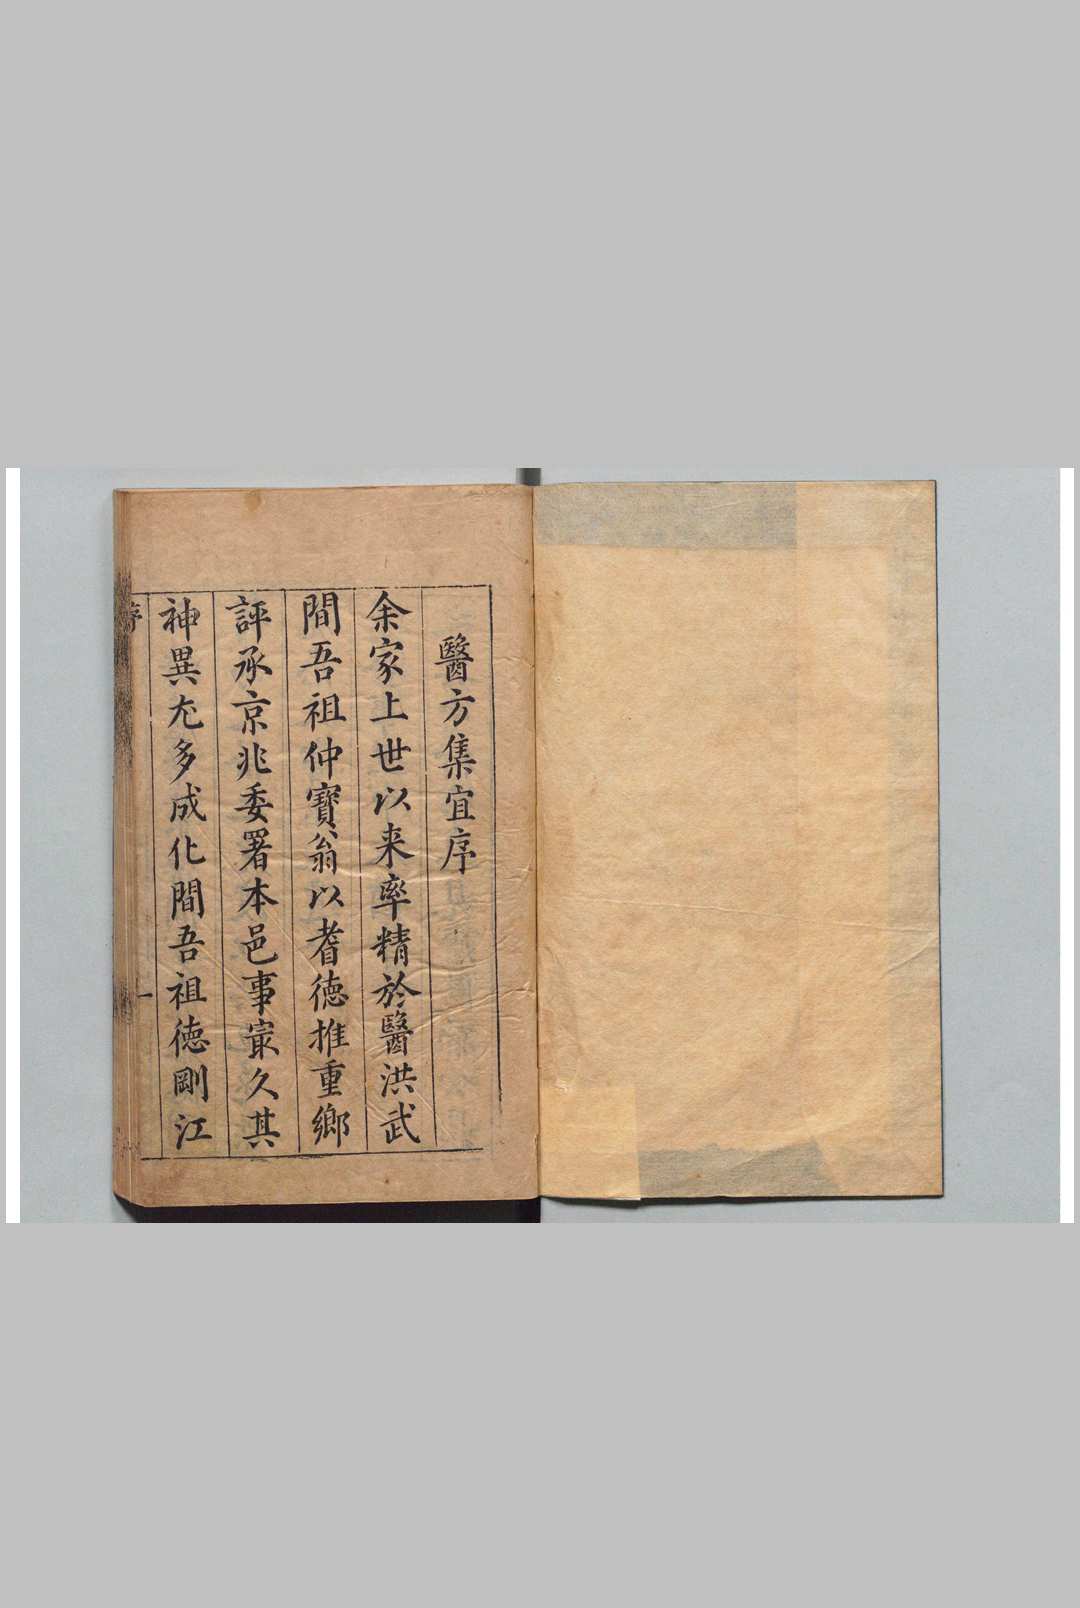 醫方集宜序
余家上世以来率精於醫洪武
間吾祖仲寶翁以耆德推重鄉
評承京兆委署本邑事㝡久其
神異尤多成化間吾祖德剛江
序
一